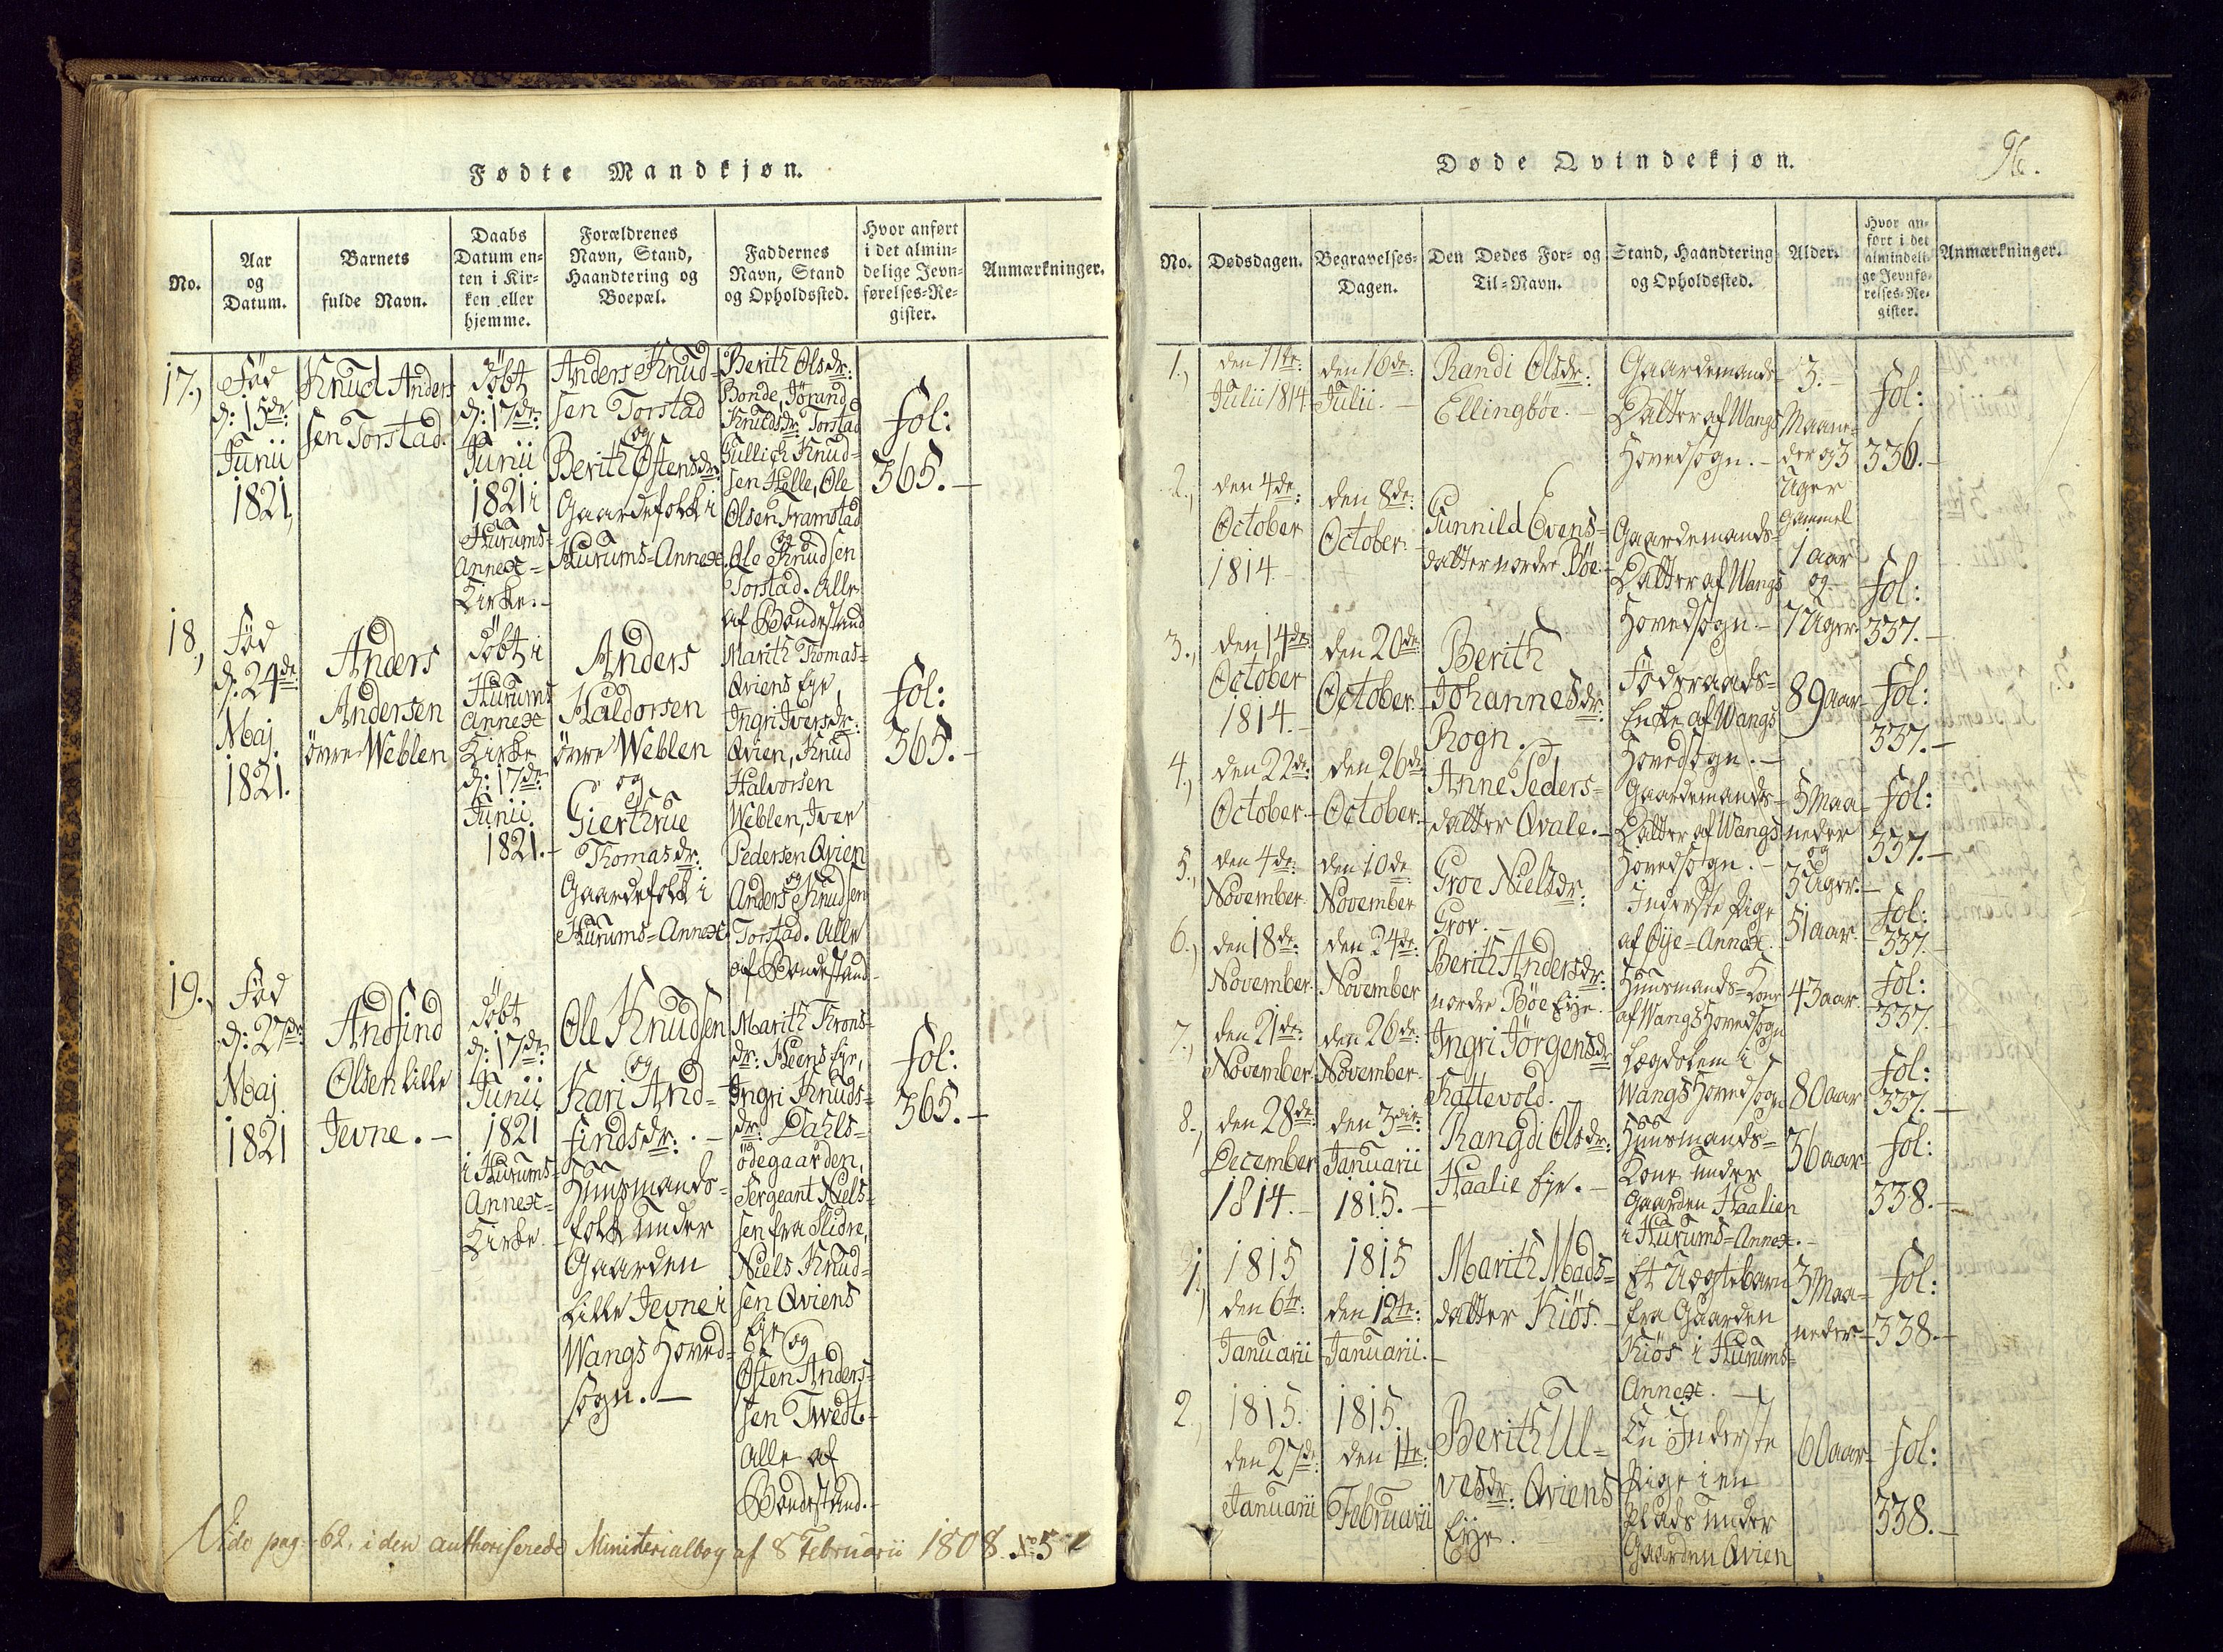 Fødte Mandkjøn.
No.
Aar
og
Datum.
Barnets
fulde Navn.
Daabs
Datum en-
ten i Kir-
ken eller
hjemme.
Forældrenes
Navn, Stand,
Haandtering og
Boepæl.
Faddernes
Navn, Stand
og Opholdssted.
Hvor anført
i det almin-
delige Jevn-
førelses-Re-
gister.
Anmærkninger.
17.,
Fød
d: 15de:
Junii
1821,
Knud Anders
sen Torstad.
Döbt
d: 17de:
Junii
1821 i
Hurums-
Annex-
Kirke.-
Anders Knud-
sen Torstad
og
Berith Östensdr:
Gaardefolk i
Hurums-Annex.
Berith Olsdr:
Bonde, Jörand
Knudsdr: Torstad
Gullich Knud-
sen Helle, Ole
Olsen Framstad
og
Ole Knudsen
Torstad. Alle
af Bondestand
fol:
365.-
18.,
Fød
d: 24de
Maj.
1821.
Anders
Andersen
övre Weblen
Döbt i
Hurums
Annex
Kirke
d: 17de
Junii.
1821.-
Anders
Haldorsen
övre Weblen
og
Gierthrue
Thomasdr:
Gaardefolk i
Hurums-Annex
Marith Thomas-
Qviens Eye,
Ingri Iversdr:
Qvien, Knud
Halvorsen
Weblen, Iver
Pedersen Qvien
og
Anders Knudsen
Torstad. Alle
af Bondestand.
fol:
365.-
19.,
Fød
d: 27de:
Maj
1821
Andfind
Olsen lille
Jevne.-
Döbt
d: 17de:
Junii
1821
i Hurums-
Annex-
Kirke.
Ole Knudsen
og
Kari And-
findsdr:.-
Huusmands-
folk under
Gaarden
lille Jevne i
Wangs Hoved-
sogn.-
Marith Trons-
dr: Heens Eye,
Ingri Knuds-
dr: Dahls-
ödegaarden,
Sergeant Niels-
sen fra Slidre,
Niels Knud-
sen Qviens
Eye og
Östen Anders-
sen Twedt.-
Alle af
Bondestand.-
fol:
365.-
Vide pag: 62. i den authoriserede Ministerialbog af 8 Februarii 1808. No 5
96.
Døde Qvindekjøn.
No.
Dødsdagen.
Begravelses-
Dagen.
Den Dødes For- og
Til-Navn.
Stand, Haandtering
og Opholdssted.
Alder.
Hvor an-
ført i det
almindeli-
ge Jevnfø-
relses-Re-
gister.
Anmærkninger.
1.,
den 11te:
Julii 1814
den 16de:
Julii.-
Randi Olsdr:
Ellingböe.-
Gaardemands-
Datter af Wangs
Hovedsogn.-
3.-
Maane-
der og 3
Uger
Gammel
fol:
336.-
2.,
den 4de:
October
1814.-
den 8de:
October.
Gunnild Evens-
datter nordre Böe.-
Gaardemands-
Datter af Wangs
Hovedsogn.-
1 aar
og
7 Uger.
fol:
337.-
3.,
den 14de:
October
1814.-
den 20de:
October.
Berith
Johannesdr:
Rogn.-
Föderaads-
Enke af Wangs
Hovedsogn.-
89 aar
fol:
337.-
4.,
den 22de:
October.-
den 26de
October.
Anne Peders-
datter Qvale.-
Gaardemands-
Datter af Wangs
Hovedsogn.-
5 Maa-
neder
og
3 Uger.-
fol:
337.-
5.,
den 4de:
November.
den 10de
November
Groe Nielsdr:
Grov.-
Inderste Pige
af Öÿe-Annex.-
51 aar.
fol:
337.
6.,
den 18de:
November.
den 24de:
November
Berith Andersdr:
nordre Böe Eye.
Huusmands-Kone
af Wangs Hovedsogn
43 aar.
fol:
337.
7.,
den 21de:
November.
den 26de:
November.
Ingri Jörgensdr
Kattevold.
Lægdslem i
Wangs Hovedsogn
80 aar
fol:
337.-
8.,
den 28de:
December
1814.-
den 3die:
Januarii
1815.-
Rangdi Olsdr:
Haalie Eye.-
Huusmands-
Kone under
Gaarden Haalien
i Hurums-Annex.-
36 aar
fol:
338.-
1.,
1815
den 6te:
Januarii
1815
den 12te:
Januarii.-
Marith Mads-
datter Kiös.-
Et Uægtebarn
fra Gaarden
Kiös i Hurums-
Annex.-
3 Maa-
neder.-
fol:
338.-
2.,
1815.
den 27de:
Januarii
1815.
den 1te:
Februarii
Berith Ul-
vesdr: Qviens
Eye.
En Inderste
Pige i en
Plads under
Gaarden Qvien
60 aar-
fol:
338.-